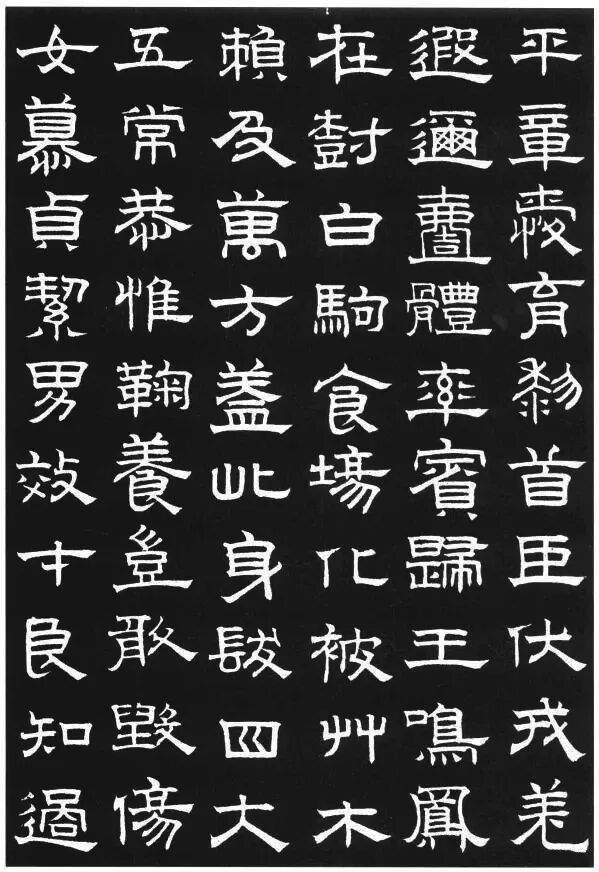 平章愛育黎首臣伏戎羌
遐邇壹體率賓歸王鳴鳳
在樹白駒食場化被艸木
賴及萬方蓋此身髮四大
五常恭惟鞠養豈敢毀傷
女慕貞絜男效才良知過